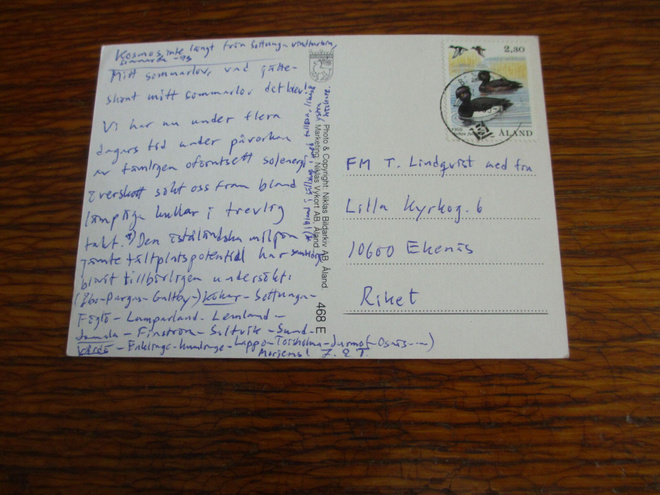 Kosmos, inte långt från Sottunga vindturbin,
sommaren -93
Mitt sommarlov, vad jätte-
skönt mitt sommarlov det blev!
Vi har nu under flera
dagars tid under påverkan
av tämligen oförutsett solenergi
överskott sökt oss fram bland
lämpliga kullar i trevlig
takt. *) Den åländska miljön
jämte tältplatspotential har
blivit tillbörligen undersökt:
(Åbo-Pargas-Galtby-) Kökar - Sottunga -
Föglö - Lumparland - Lemland -
Jomala - Finström - Saltvik - Sund -
Vårdö - Enklinge - Kumlinge - Lappo - Torsholma - Jurmo (- Osnäs -)
Morjens!
Photo & Copyright: Niklas Bildarkiv AB, Åland
Marketing: Niklas Vykort AB, Åland
468 E
2,30
ÅLAND
FM T. Lindqvist med fru
Lilla Kyrkog. 6
10600 Ekenäs
Riket